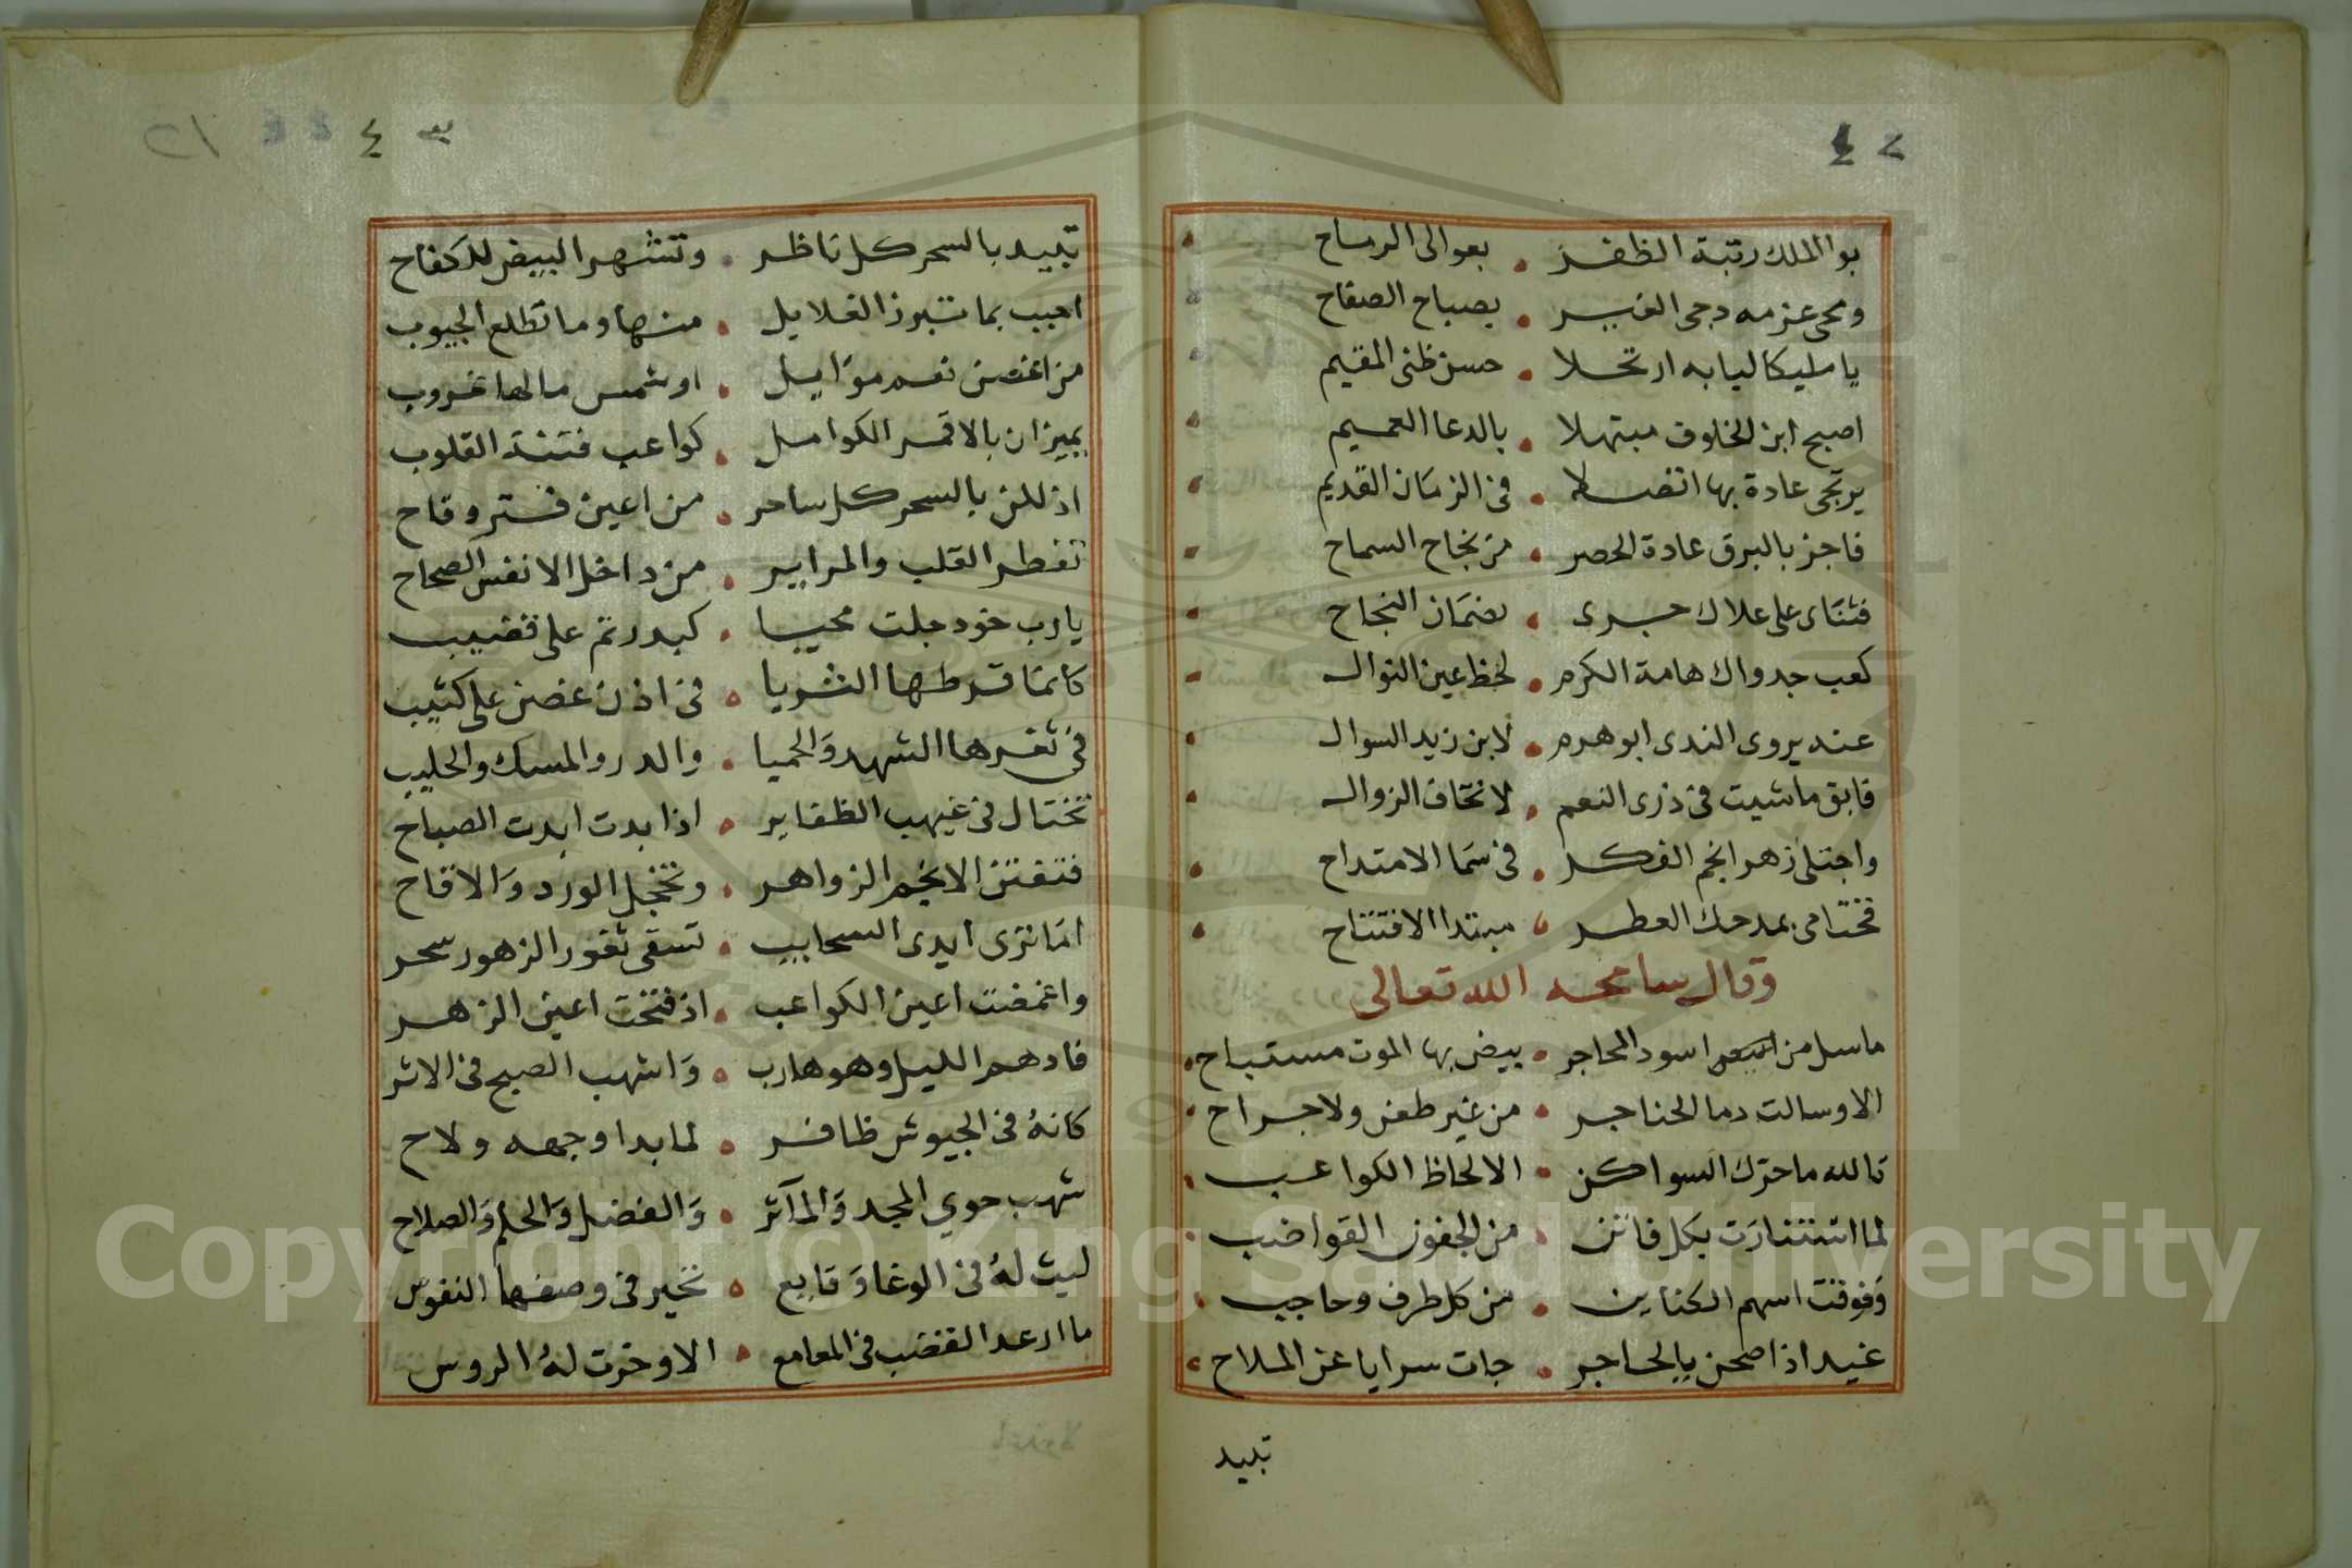 بوا الملك رتبة الظفر • بعوالى الرماح
ومحى عزمه دجى الغير • بصباح الصفاح
يا مليكا ليابه ارتحلا • حسن ظنى المقيم
اصبح ابن الخلوف مبتهلا • بالدعا العميم
يرتجى عادة بها اتصلا • فى الزمان القديم
فاجز بالبرق عادة الحصر • من نجاح السماح
فثناى على علاك جرى • بضمان النجاح
كعب جدواك هامة الكرم • لحظ عين النوال
عند يروى الندى ابو هرم • لابن زيد السوال
فابق ما شيت فى ذرى النعم • لا تخاف الزوال
واجتلى زهر انجم الفكر • فى سما الامتداح
فختامى بمدحك العطر • مبتدا الافتتاح
وقال سامحه الله تعالى
ماسل من اسود المحاجر • بيض بها الموت مستباح
الا وسالت دما الحناجر • من غير طعن ولا جراح
تالله ما حرك السواكن • الا لحاظ الكواعب
لما استنارت بكل فاتن • من الجفون القواضب
وفوقت اسهم الكناين • من كل طرف وحاجب
غيد اذا صحن بالحاجر • جات سرايا عن الملاح
تبيد
تبيد بالسحر كل ناظر • وتشهر البيض للكفاح
احبب بما تبرز الغلايل • منها وما تطلع الجيوب
من اغصن نعم موايل • او شمس مالها غروب
يميزان بالاقمر الكوامل • كواعب فتنة القلوب
اذ للن بالسحر كل ساحر • من اعين فتر وقاح
تفطر القلب والمراير • من داخل الانفس الصحاح
يارب خود جلت محيا • كبدر تم على قضيب
كانما قرطها الثريا • فى اذن غصن على كثيب
فى ثغرها الشهد والحميا • والدر والمسك والحليب
تختال فى غيهب الظفاير • اذا بدت ابدت الصباح
فتفتن الانجم الزواهر • وتخجل الورد والاقاح
اما ترى ايدى السحايب • تسقى ثغور الزهور سحر
واغمضت اعين الكواعب • اذ فتحت اعين الزهر
فادهم الليل وهو هارب • واشهب الصبح فى الاثر
كانه فى الجيوش ظافر • لما بدا وجهه ولاح
شهب حوي المجد والمآثر • والفضل والحلم والصلاح
ليث له فى الوغا وقايع • تحير فى وصفها النفوس
ما ارعد القضب فى المعامع • الا وخرت له الروس
Copyright © King Saud University